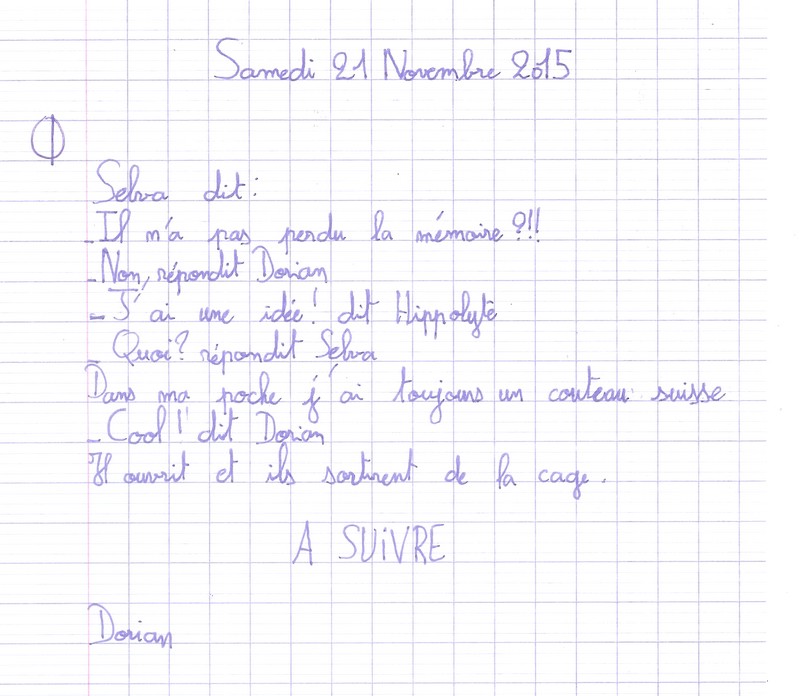 Samedi 21 Novembre 2015
Selva dit:
_Il n'a pas perdu la mémoire ?!!
_Non, répondit Dorian
_J'ai une idée! dit Hippolyte
_Quoi? répondit Selva
Dans ma poche j'ai toujours un couteau suisse
_Cool! dit Dorian
Il ouvrit et ils sortirent de la cage.
A SUiVRE
Dorian